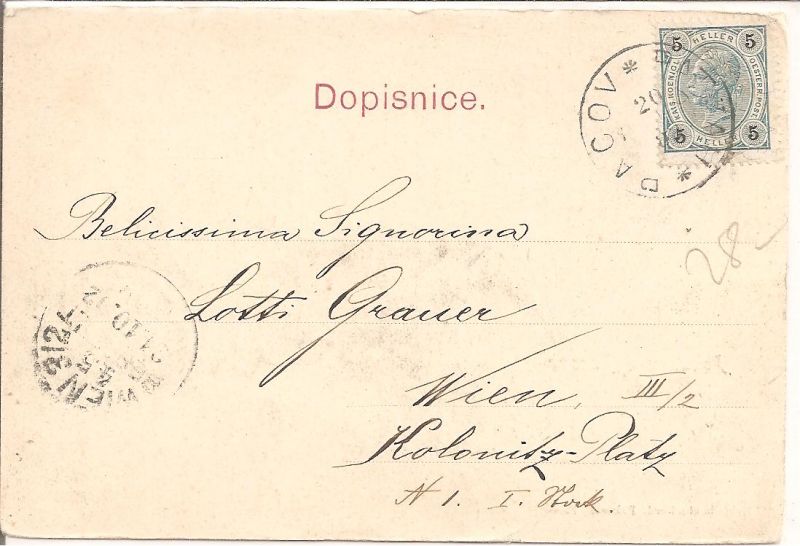 Dopisnice.
5 HELLER 5
KAIS. KOENIGL. OESTERR. POST.
5 HELLER 5
PACOV * *
20
28-
Belicissima Signorina
Lotti Grauer
Wien, III/2
Kolonitz-Platz
N 1. I. Stock.
WIEN 3/2